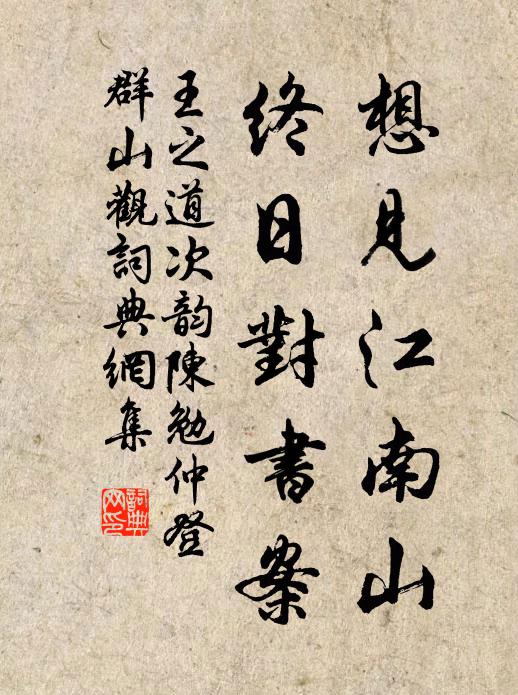 想見江南山
終日對書案
王之道次韵陳勉仲登
群山觀詞典網集
詞典網印